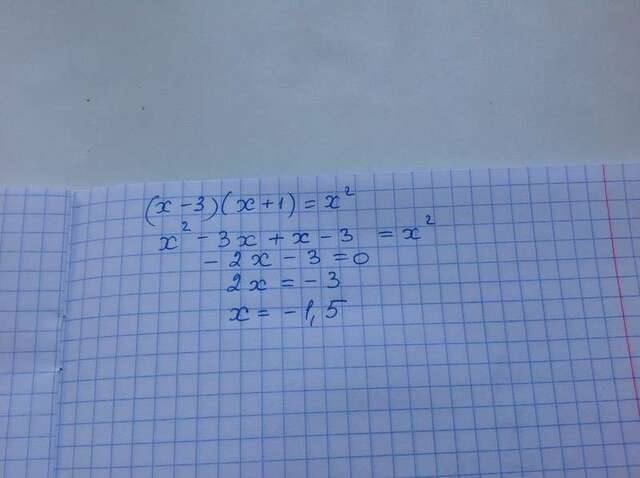 (x-3)(x+1)=x²
x²-3x+x-3=x²
-2x-3=0
2x=-3
x=-1,5